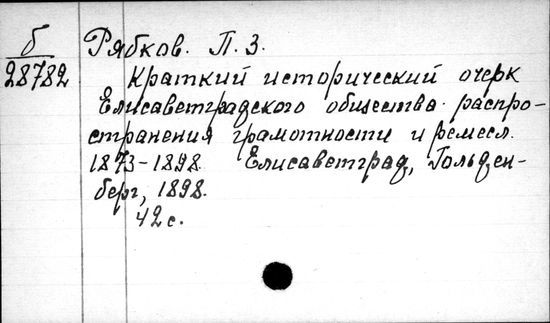 б
28782
Рябков. П. З.
Краткий исторический очерк
Елисаветградского общества распро-
странения грамотности и ремесл.
1873-1898. Елисаветград, Гольден-
берг, 1898.
42 с.